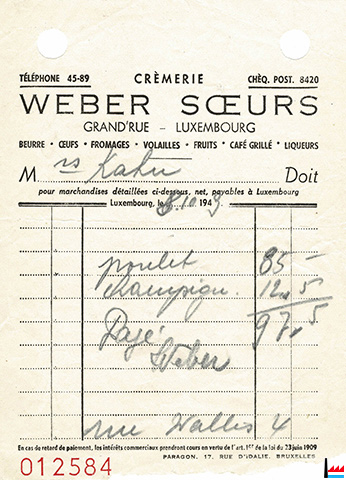 TÉLÉPHONE 45-89 CRÈMERIE CHÈQ. POST. 8420
WEBER SŒURS
GRAND'RUE – LUXEMBOURG
BEURRE • ŒUFS • FROMAGES • VOLAILLES • FRUITS • CAFÉ GRILLÉ • LIQUEURS
Mrs Kahn Doit
pour marchandises détaillées ci-dessous, net, payables à Luxembourg
Luxembourg, le 8.10 1949
poulet 85 –
Kampign. 12,5
97,5
Payé
Weber
rue Wallis 4
En cas de retard de paiement, les intérêts commerciaux prendront cours en vertu de l'art. 1er de la loi du 23 juin 1909
012584
PARAGON, 17, RUE D'IDALIE, BRUXELLES